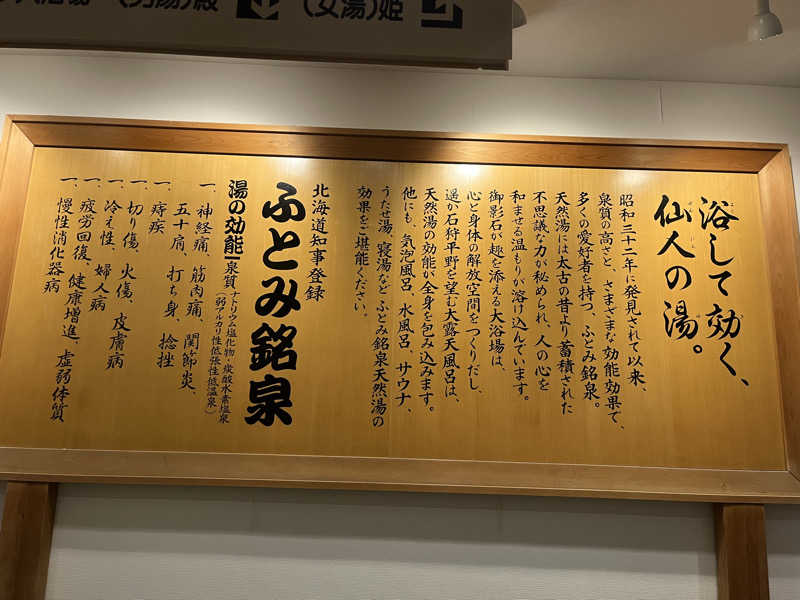 (女湯)姫
浴して効く、
仙人の湯。
昭和三十二年に発見されて以来、
泉質の高さと、さまざまな効能効果で、
多くの愛好者を持つ、ふとみ銘泉。
天然湯には太古の昔より蓄積された
不思議な力が秘められ、人の心を
和ませる温もりが溶け込んでいます。
御影石が趣を添える大浴場は、
心と身体の解放空間をつくりだし、
遥か石狩平野を望む大露天風呂は、
天然湯の効能が全身を包み込みます。
他にも、気泡風呂、水風呂、サウナ、
うたせ湯、寝湯など、ふとみ銘泉天然湯の
効果をご堪能ください。
北海道知事登録
ふとみ銘泉
湯の効能 泉質 ナトリウム塩化物・炭酸水素塩泉
(弱アルカリ性低張性低温泉)
一、神経痛、筋肉痛、関節炎、
五十肩、打ち身、捻挫
一、痔疾
一、切り傷、火傷、皮膚病
一、冷え性、婦人病
一、疲労回復、健康増進、虚弱体質
一、慢性消化器病